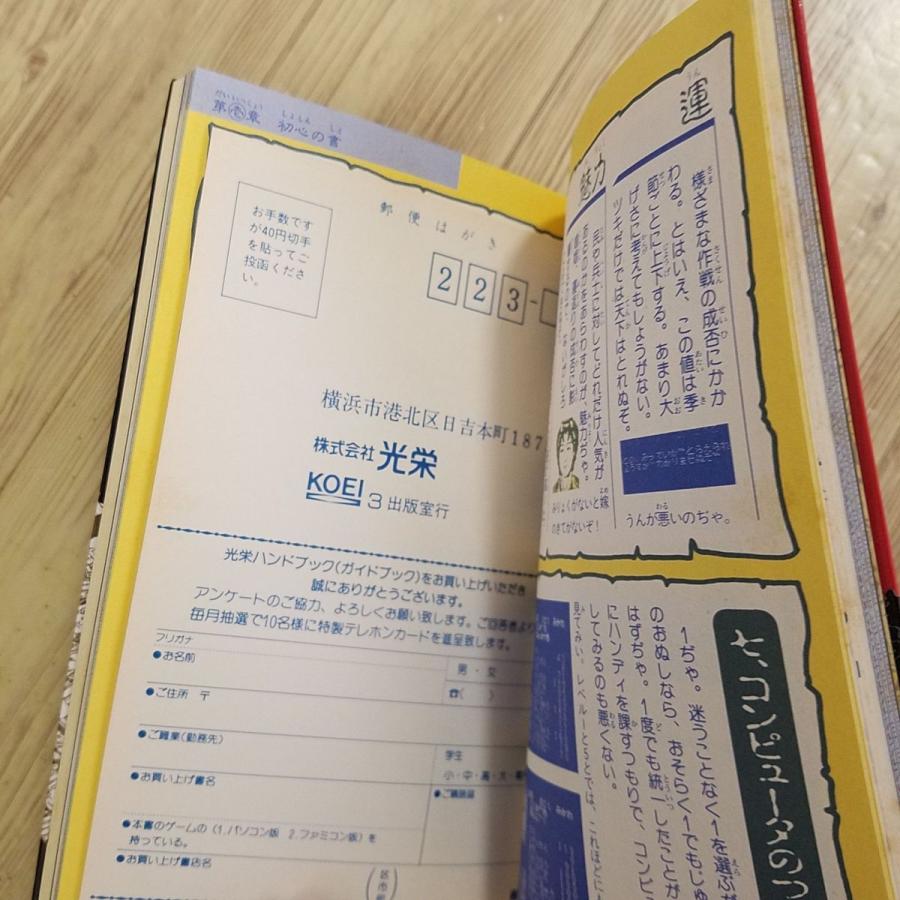 第壱章 初心の書
郵便はがき
お手数です
が40円切手
を貼ってご
投函くださ
い。
223-
横浜市港北区日吉本町187
株式会社 光栄
KOEI 3 出版室行
光栄ハンドブック(ガイドブック)をお買い上げいただき
誠にありがとうございます。
アンケートのご協力、よろしくお願い致します。ご回答者より
毎月抽選で10名様に特製テレホンカードを進呈致します。
フリガナ
●お名前
男・女
●ご住所 〒
☎( )
●ご職業(勤務先)
学生
小・中・高・大・
●お買い上げ書名
●ご購読誌
●本書のゲームの(1.パソコン版 2.ファミコン版)を
持っている。
●お買い上げ書店名
運
様ざまな作戦の成否にかか
わる。とはいえ、この値は季
節ごとに上下する。あまり大
げさに考えてもしょうがない。
ツキだけでは天下はとれぬぞ。
うんが悪いのぢゃ。
魅力
民や兵士に対してどれだけ人気が
あるかをあらわすのが、魅力ぢゃ。
みりょくがないと嫁
のきてがないぞ!
七、コンピュータのつ
1ぢゃ。迷うことなく1を選ぶが
のおぬしなら、おそらく1でもじゅ
はずぢゃ。1度でも統一したことが
にハンディを課すつもりで、コンピ
してみるのも悪くない。
見てみい。レベル1と5とでは、これほどに